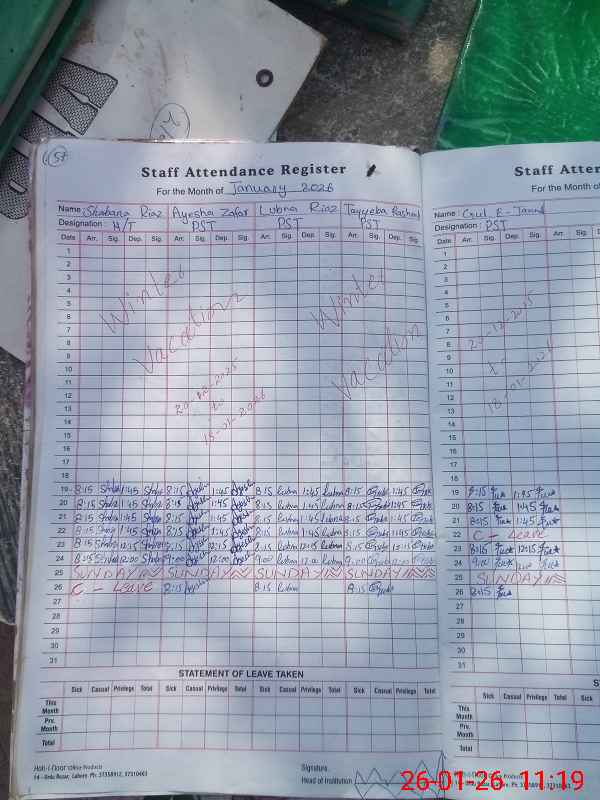 57
Staff Attendance Register
For the Month of January 2026
Name : Shabana Riaz Ayesha Zafar Lubna Riaz Tayyeba Rashid
Designation : H/T PST PST PST
Date Arr. Sig. Dep. Sig. Arr. Sig. Dep. Sig. Arr. Sig. Dep. Sig. Arr. Sig. Dep. Sig.
1
2
3
4
5
6
7
8
9
10
11
12
13
14
15
16
17
18
Winter Vacation
20-12-2025
to
18-01-2026
Winter Vacation
19 8:15 1:45 8:15 1:45 8:15 Lubna 1:45 Lubna 8:15 1:45
20 8:15 1:45 8:15 1:45 8:15 Lubna 1:45 Lubna 8:15 1:45
21 8:15 1:45 8:15 1:45 8:15 Lubna 1:45 Lubna 8:15 1:45
22 8:15 1:45 8:15 1:45 8:15 Lubna 1:45 Lubna 8:15 1:45
23 8:15 12:15 8:15 12:15 8:15 Lubna 12:15 Lubna 8:15 12:15
24 9:00 12:00 9:00 12:00 9:00 Lubna 12:00 Lubna 9:00 12:00
25 SUNDAY SUNDAY SUNDAY SUNDAY
26 C - Leave 8:15 8:15 Lubna 8:15
27
28
29
30
31
STATEMENT OF LEAVE TAKEN
Sick Casual Privilege Total Sick Casual Privilege Total Sick Casual Privilege Total Sick Casual Privilege Total
This Month
Prv. Month
Total
14 - Urdu Bazar, Lahore. Ph: 37358912, 37310463
Signature.
Head of Institution
Staff Atten
For the Month of
Name :
Designation : PST
Date Arr. Sig. Dep. Sig. Arr. Sig.
1
2
3
4
5
6
7
8
9
10
11
12
13
14
15
16
17
18
20-12-2025
to
18-01-2026
19 8:15 1:45
20 8:15 1:45
21 8:15 1:45
22 C - Leave
23 8:15 12:15
24 9:00 12:00
25 SUNDAY
26 8:15
27
28
29
30
31
Sick Casual Privilege Total Sick Casual
This Month
Prv. Month
Total
26-01-26 11:19